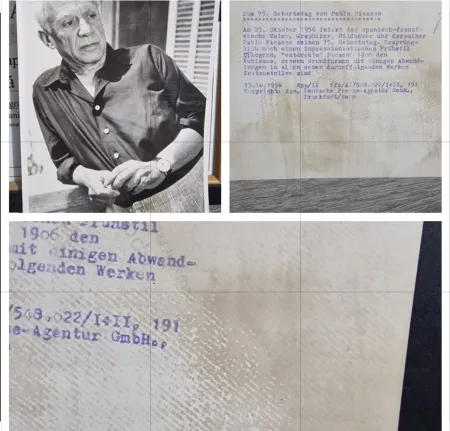 Zum 75. Geburtstag von Pablo Picasso
Am 25. Oktober 1956 feiert der spanisch-franzö-
sische Maler, Graphiker, Bildhauer und Keramiker
Pablo Picasso seinen 75. Geburtstag. Ursprüng-
lich nach einem impressionistischen Frühstil
Picasso 1906 den
Kubismus, dessen Grundformen mit einigen Abwand-
lungen in allen seinen darauffolgenden Werken
festzustellen sind
13.10.1956 dpa/II 548.022/I+II, 191
Copyright: dpa, Deutsche Presse-Agentur GmbH.,
Frankfurt/Main
Frühstil
1906 den
mit einigen Abwand-
olgenden Werken
/548.022/I+II, 191
e-Agentur GmbH.,